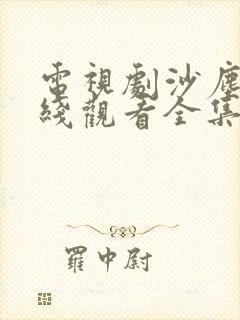 電視劇沙塵
綫觀看全集
羅中尉